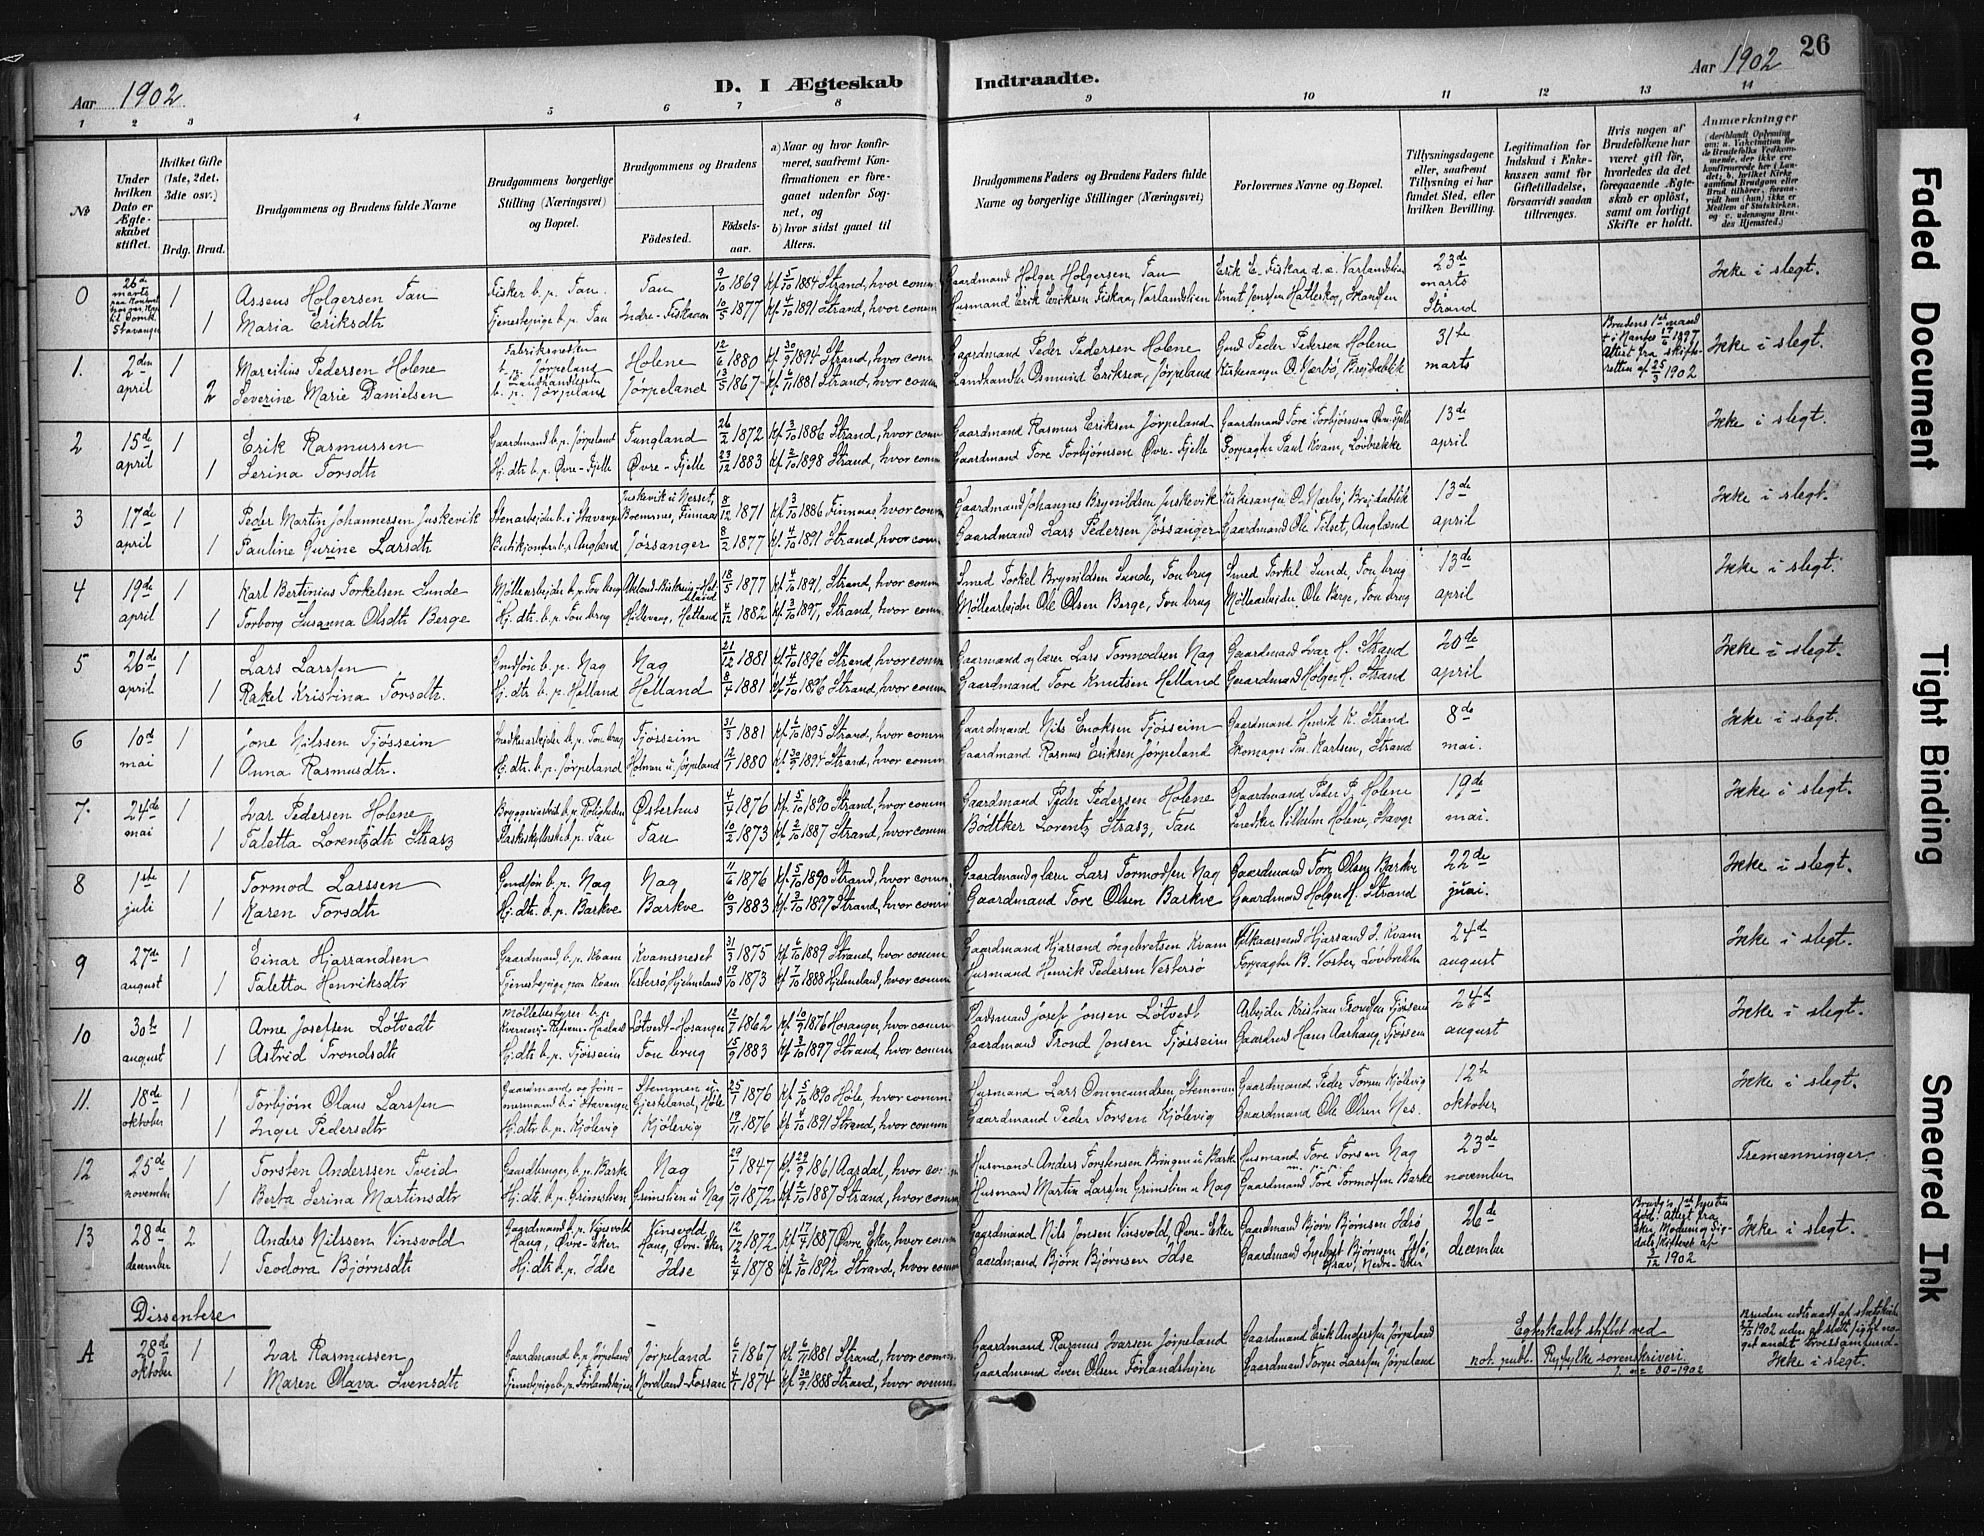 Aar 1902
D. I Ægteskab Indtraadte.
Aar 1902
26
1 2 3 4 5 6 7 8 9 10 11 12 13 14
№
Under hvilken Dato er Ægteskabet stiftet.
Hvilket Gifte (1ste, 2det, 3dte osv.)
Brdg. Brud.
Brudgommens og Brudens fulde Navne
Brudgommens borgerlige Stilling (Næringsvei) og Bopæl.
Brudgommens og Brudens
Födested.
Födselsaar.
a) Naar og hvor konfirmeret, saafremt Konfirmationen er foregaaet udenfor Sognet, og
b) hvor sidst gaaet til Alters.
Brudgommens Faders og Brudens Faders fulde Navne og borgerlige Stillinger (Næringsvei)
Forlovernes Navne og Bopæl.
Tillysningsdagene eller, saafremt Tillysning ei har fundet Sted, efter hvilken Bevilling.
Legitimation for Indskud i Enkekassen samt for Giftetilladelse, forsaavidt saadan tiltrænges.
Hvis nogen af Brudefolkene har været gift för, hvorledes da det foregaaende Ægteskab er oplöst, samt om lovligt Skifte er holdt.
Anmærkninger (deriblandt Oplysning om: a. Vakcination for de Brudefolks Vedkommende, der ikke ere konfirmerede her i Landet; b. hvilket Kirkesamfund Brudgom eller Brud tilhører, forsaavidt han (hun) ikke er Medlem af Statskirken, og c. udensogns Brudes Hjemsted.)
0 26de marts 1 Assens Holgersen Tau Fisker b. p. Tau. Tau 9/10 1869 kf. 5/10 1884 Strand, hvor comm. Gaardmand Holger Holgersen Tau Erik E. Fiskaa d.æ. Varlandslien 23de marts Strand Ikke i slegt.
1 Maria Eriksdtr Tjenestepige b. p. Tau Indre-Fiskaaen 10/5 1877 kf. 4/10 1891 Strand, hvor comm Husmand Erik Eriksen Fiskaa, Varlandslien Knut Jensen Hatleskog, Skandsen
1. 2den april 1 Marcilius Pedersen Holene b. p. Jørpeland Holene 12/6 1880 kf. 30/9 1894 Strand, hvor com Gaardmand Peder Pedersen Holene Gmd Peder Pedersen Holene 31te marts Brudens 1ste mand 1897 Attest fra skifteretten af 25/3 1902 Ikke i slegt.
2 Severine Marie Danielsen b. p. Jørpeland Jørpeland 13/5 1867 kf. 6/11 1881 Strand, hvor comm Landhandler Osmund Eriksen, Jørpeland Kirkesanger O. Nærbø, Breidablik
2 15de april 1 Erik Rasmussen Gaardmand b. p. Jørpeland Tungland 26/2 1872 kf. 3/10 1886 Strand, hvor comm Gaardmand Rasmus Eriksen Jørpeland Gaardmand Tore Torbjørnsen Øvre-Fjelle 13de april Ikke i slegt.
1 Serina Torsdtr Hj. dtr. b. p. Øvre-Fjelle Øvre-Fjelle 23/12 1883 kf. 2/10 1898 Strand, hvor comm. Gaardmand Tore Torbjørnsen Øvre-Fjelle Forpagter Paul Kvam, Løvbrekke
3 17de april 1 Peder Martin Johannessen Juskevik Stenarbejder b. i Stavanger Juskevik u. Nesset, Bremnes, Finnaas 8/12 1871 kf. 3/10 1886 Finnaas, hvor comm Gaardmand Johannes Brynildsen Juskevik Kirkesanger O. Nærbø, Breidablik 13de april Ikke i slegt.
1 Pauline Gurine Larsdtr Butikjomfru b. p. Angland Jøssanger 8/2 1877 kf. 4/10 1891 Strand, hvor com Gaardmand Lars Pedersen Jøssanger Gaardmand Ole Tilset, Angland
4 19de april 1 Karl Bertinius Torkelsen Sunde Møllearbejder b. p. Tou brug 18/5 1877 kf. 4/10 1891, Strand, hvor comm Smed Torkel Brynildsen Sunde, Tou brug Smed Torkel Sunde, Tou brug 13de april Ikke i slegt.
1 Torborg Susanna Olsdtr Berge Hj. dtr. b. p. Tou brug Hellevang, Hetland 4/12 1882 kf. 3/10 1897, Strand, hvor comm Møllearbejder Ole Olsen Berge, Tou brug Møllearbeider Ole Berge, Tou brug
5 26de april 1 Lars Larsen Gmdsøn b. p. Nag Nag 21/12 1881 kf. 4/10 1896 Strand, hvor comm Gaarmand og lærer Lars Tormodsen Nag Gaardmand Ivar H. Strand 20de april Ikke i slegt.
1 Rakel Kristina Torsdtr. Hj. dtr. b. p. Helland Helland 8/4 1881 kf. 4/10 1896 Strand, hvor comm Gaardmand Tore Knutsen Helland Gaardmand Holger H. Strand
6 10de mai 1 Jone Nilssen Tjøsseim Snedkerarbejder b. p. Tou brug Tjøsseim 31/3 1881 kf. 6/10 1895 Strand, hvor comm Gaardmand Nils Enoksen Tjøsseim Gaardmand Henrik K. Strand 8de mai. Ikke i slegt.
1 Anna Rasmusdtr. Hj. dtr. b. p. Jørpeland Holmen u. Jørpeland 12/7 1880 kf. 30/9 1894 Strand, hvor comm. Gaardmand Rasmus Eriksen Jørpeland Skomager Karlsen, Strand
7. 24de mai 1 Ivar Pedersen Holene Bryggeriarbeid. b. p. Roligheden Østerhus 4/4 1876 kf. 5/10 1890 Strand, hvor comm Gaardmand Peder Pedersen Holene Gaardmand Peder P. Holene 19de mai. Ikke i slegt.
1 Taletta Lorentzdtr Strasz b. p. Tau Tau 10/2 1873 kf. 2/10 1887 Strand, hvor comm. Bødtker Lorentz Strasz, Tau Snedker Vilhelm Holene, Stavgr
8 1ste juli 1 Tormod Larssen Gmdsøn b. p. Nag Nag 11/6 1876 kf. 5/10 1890 Strand, hvor comm Gaardmand og lærer Lars Tormodsen Nag Gaardmand Tore Olsen Barkve 22de juni. Ikke i slegt.
1 Karen Torsdtr Hj. dtr. b. p. Barkve Barkve 10/3 1883 kf. 3/10 1897 Strand, hvor comm Gaardmand Tore Olsen Barkve Gaardmand Holger H. Strand
9 27de august 1 Einar Hjarrandsen Gaardmand b. p. Kvam Kvamsneset 31/3 1875 kf. 6/10 1889 Strand, hvor comm Gaardmand Hjarrand Ingebretsen Kvam Hjarrand J. Kvam 24de august Ikke i slegt.
1 Taletta Henriksdtr Tjenestepige paa Kvam Vestersø, Hjelmeland 19/10 1873 kf. 7/10 1888 Hjelmeland, hvor comm. Husmand Henrik Pedersen Vestersø Forpagter B. Voster, Løvbrekke
10 30te august 1 Arne Josefsen Løtvedt Møllebestyrer b. p. Løtvedt-Hosanger 12/7 1862 kf. 10/9 1876 Hosanger, hvor comm Pladsmand Josef Jonsen Løtvedt Arbejder Kristian Trondsen Tjøsseim 24de august Ikke i slegt.
1 Astrid Trondsdtr Hj. dtr. b. p. Tjøsseim Tou brug 15/9 1883 kf. 3/10 1897 Strand, hvor comm. Gaardmand Trond Jonsen Tjøsseim Gaardmd Hans Aarhaug, Tjøsseim
11. 18de oktober 1 Torbjørn Olaus Larssen Gaardmand og tømmermand b. i Stavanger Stemmen u. Gjeskeland, Høle 25/7 1876 kf. 5/10 1890 Høle, hvor comm. Husmand Lars Ommundsen, Stemmen Gaardmand Peder Torsen Kjølevig 12te oktober Ikke i slegt.
1 Inger Pedersdtr Hj. dtr. b. p. Kjølevig Kjølevig 19/11 1876 kf. 4/10 1891 Strand, hvor comm Gaardmand Peder Torsen Kjølevig Gaardmand Ole Olsen Nes.
12 25de november 1 Torsten Anderssen Tveid Gaardbruger b. p. Barke Nag 29/7 1847 kf. 29/9 1861 Aardal, hvor comm Husmand Anders Torstensen Bringen u. Barke Husmand Tore Torsen Nag 23de november Tremænninger
1 Berta Serina Martinsdtr Hj. dtr. b. p. Grimslien Grimslien u. Nag 10/11 1872 kf. 2/10 1887 Strand, hvor comm Husmand Martin Larssen Grimslien u. Nag Gaardmand Tore Tormodsen Barke
13 28de december 2 Anders Nilssen Vinsvold Gaardmand b. p. Vinsvold Haug, Øvre-Eker Vinsvold, Haug, Øvre-Eker 12/12 1872 kf. 17/4 1887 Øvre Eker, hvor comm Gaardmand Nils Jonsen Vinsvold, Øvre-Eker Gaardmand Bjørn Bjørnsen Idsø 26de december Brudg's 1ste hustru død. Attest fra Eker, Modum og Sigdals skifteret af 3/12 1902 Ikke i slegt.
1 Teodora Bjørnsdtr Hj. dtr. b. p. Idse Idse 2/4 1878 kf. 2/10 1892 Strand, hvor comm Gaardmand Bjørn Bjørnsen Idse Gaardmand Ingebret Bjørnsen Idsø, Grav, Nedre-Eker
Dissentere
A 28de oktober 1 Ivar Rasmussen Gaardmand b. p. Jørpeland Jørpeland 6/1 1867 kf. 6/11 1881 Strand, hvor comm. Gaardmand Rasmus Ivarsen Jørpeland Gaardmand Erik Anderssen Jørpeland Egteskabet stiftet ved not. publ. Ryfylke sorenskriveri Bruden udtraadt af statskirken 27/10 1902 uden at slutte sig til noget andet trossamfund. Ikke i slegt.
1 Maren Olava Svensdtr Tjenestepige b. p. Førlandshejen Nordland-Fossan 4/7 1874 kf. 30/9 1888 Strand, hvor comm Gaardmand Sven Olsen Førlandshejen Gaardmand Torger Larssen Jørpeland
Faded Document
Tight Binding
Smeared Ink